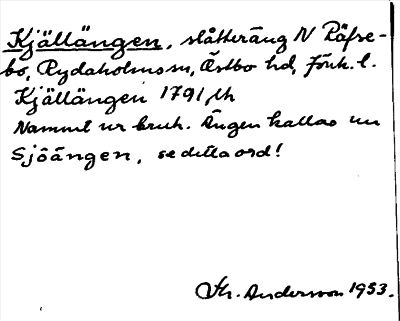 Kjällängen, slåtteräng N Räfse-
bo, Rydaholms sn, Östbo hd, Jönk. l.
Kjällängen 1791 lh
Namnet ur bruk. Ängen kallas nu
Sjöängen, se detta ord!
Th. Andersson 1953.